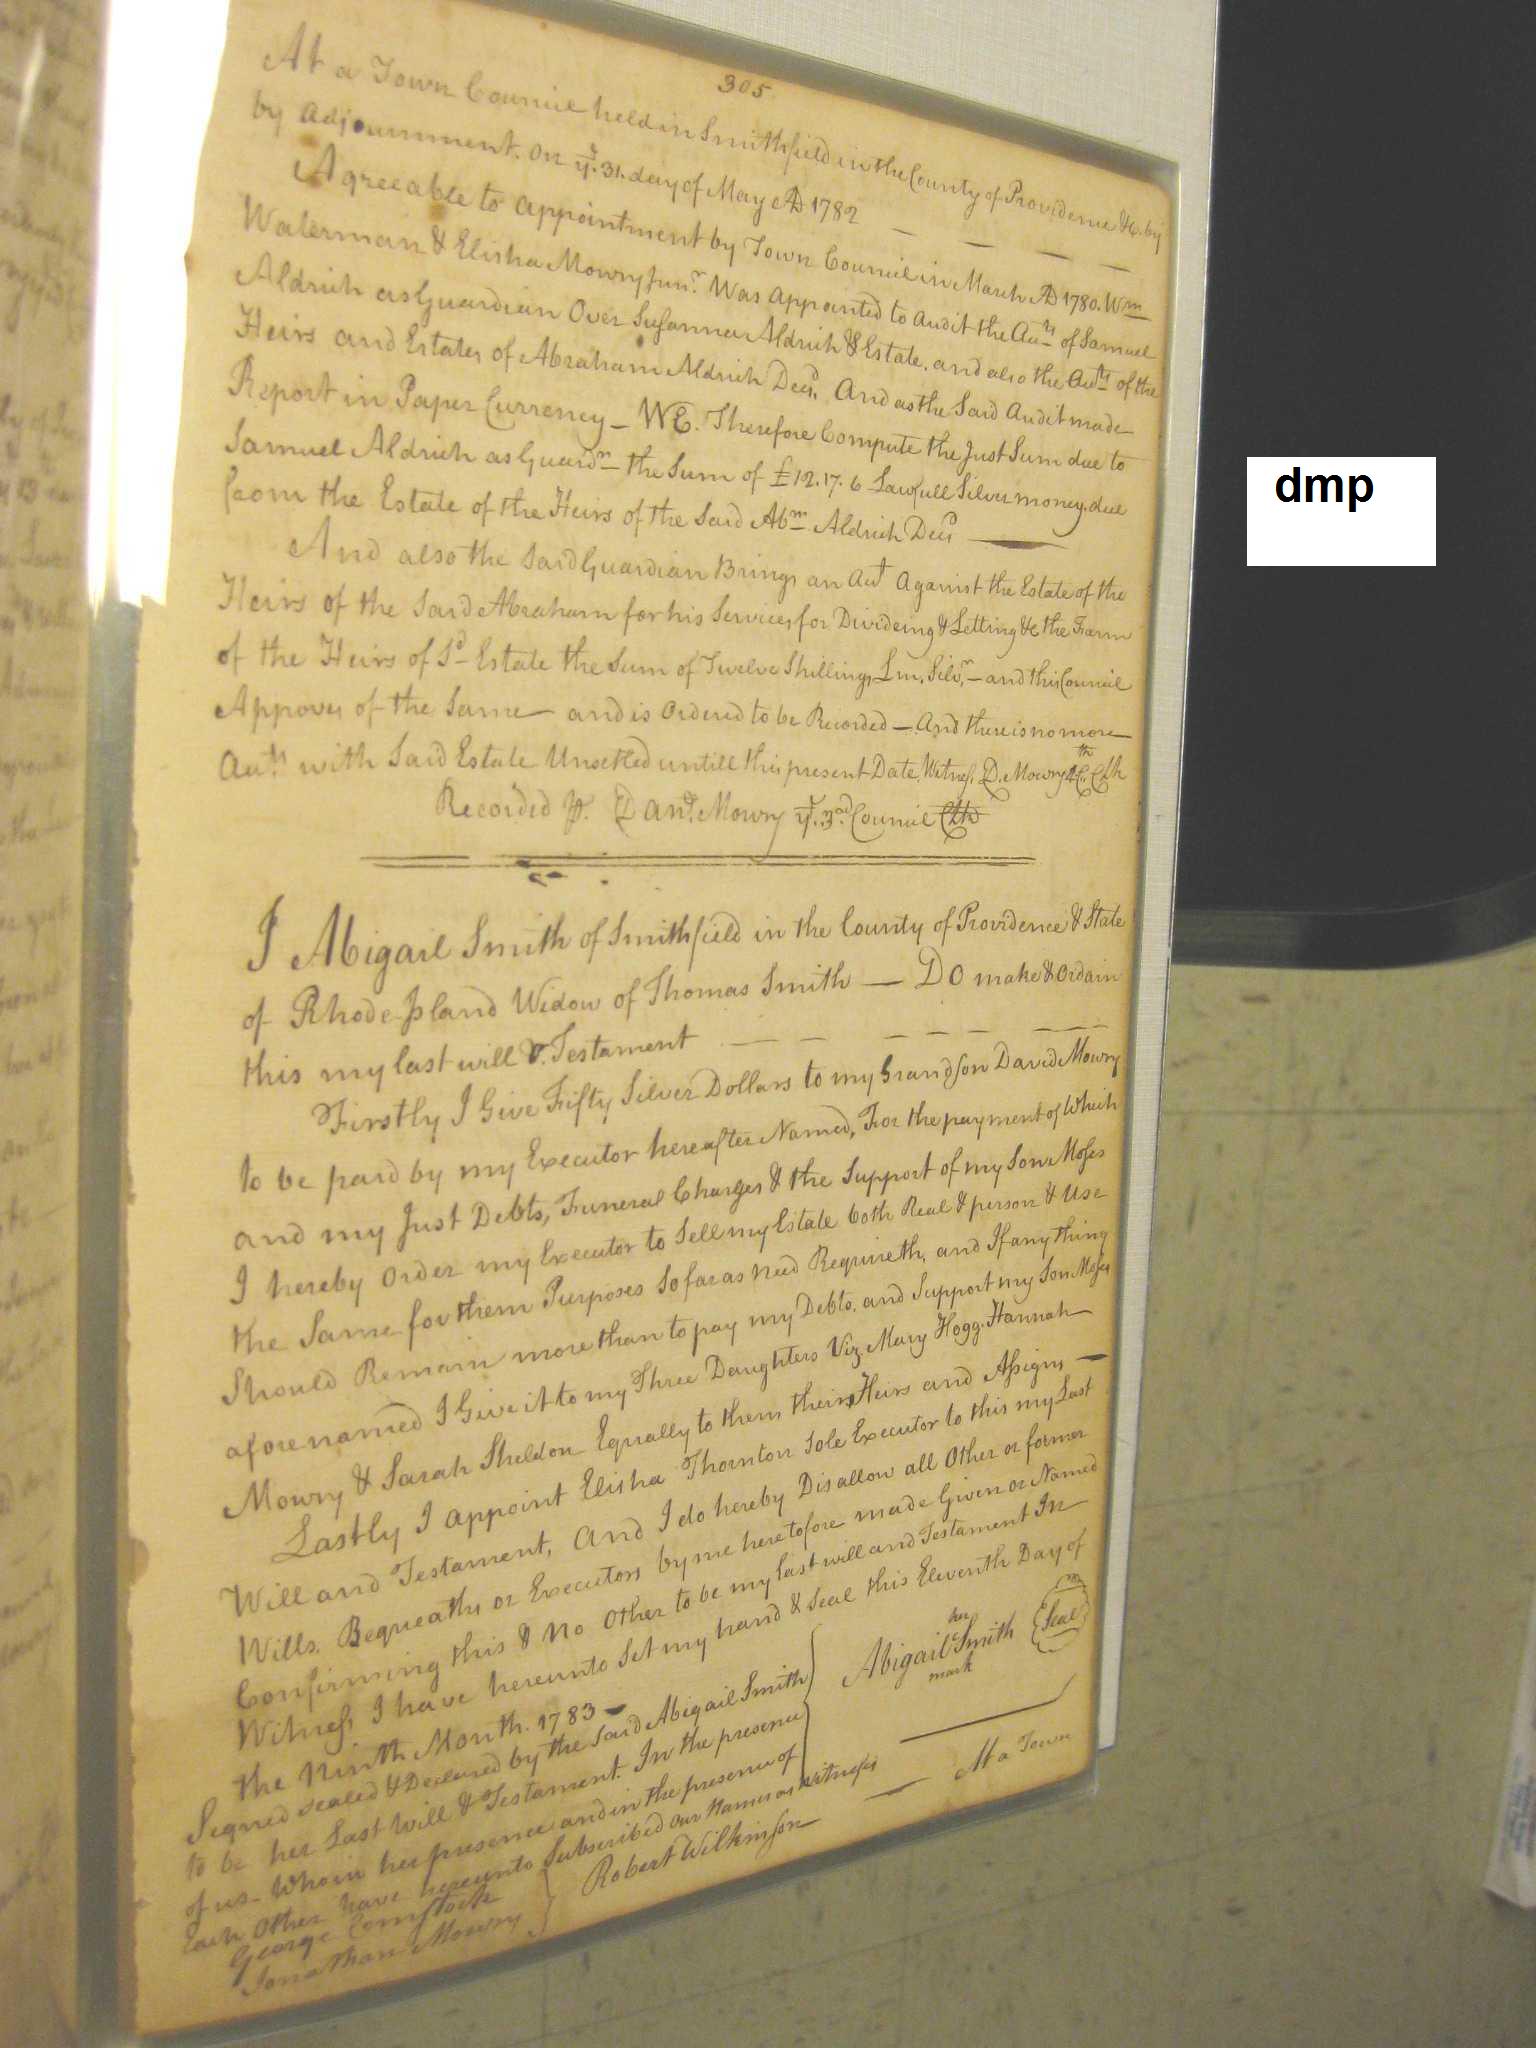 305
At a Town Council held in Smithfield in the County of Providence &c. by
by adjournment. on ye. 31. day of May AD 1782
Agreeable to appointment by Town Council in March AD 1780. Wm
Waterman & Elisha Mowry junr. Was appointed to audit the Auts of Samuel
Aldrich as Guardian Over Susanna Aldrich & Estate, and also the Auts of the
Heirs and Estates of Abraham Aldrich Decd. And as the Said Audit made
Report in Paper Currency – WE. Therefore Compute the Just Sum due to
Samuel Aldrich as Guardn – the Sum of £12.17.6 Lawfull Silver money, due
from the Estate of the Heirs of the Said Abm Aldrich Decd
And also the Said Guardian Brings an Aut Against the Estate of the
Heirs of the Said Abraham for his Services for Divideing & Letting &c the Farm
of the Heirs of Sd Estate the Sum of Twelve Shillings Lm. Silvr. – and this Council
Approves of the Same – and is Ordered to be Recorded – And there is no more
Auts with Said Estate Unsetled untill this present Date. Witness. D. Mowry 4th C. Clk
Recorded Pr. Danl. Mowry ye. 3rd. Council Clk
I Abigail Smith of Smithfield in the County of Providence & State
of Rhode-Island Widow of Thomas Smith — DO make & ordain
this my last will & Testament
Firstly I Give Fifty Silver Dollars to my Grandson David Mowry
to be paid by my Executor hereafter Named, For the payment of Which
and my Just Debts, Funeral Charges & the Support of my Son Moses
I hereby Order my Executor to Sell my Estate both Real & person & Use
the Same for them Purposes So far as need Requireth, and If any thing
Should Remain more than to pay my Debts. and Support my Son Moses
afore named I Give it to my Three Daughters Viz Mary Hogg. Hannah
Mowry & Sarah Sheldon Equally to them their Heirs and Assigns —
Lastly I appoint Elisha Thornton Sole Executor to this my Last
Will and Testament, and I do hereby Disallow all Other or former
Wills. Bequeaths or Executors by me heretofore made Given or Named
Confirming this & No Other to be my last will and Testament In
Witness I have hereunto Set my hand & Seal this Eleventh Day of
the Ninth Month. 1783 –
Signed Sealed & Declared by the Said Abigail Smith
to be her Last Will & Testament. In the presence
of us – Who in her presence and in the presence of
Each Other have hereunto Subscribed our Names as Witnesses
her
Abigail Smith
mark
Seal
George Comstock
Jonathan Mowry
Robert Wilkinson
At a Town
dmp